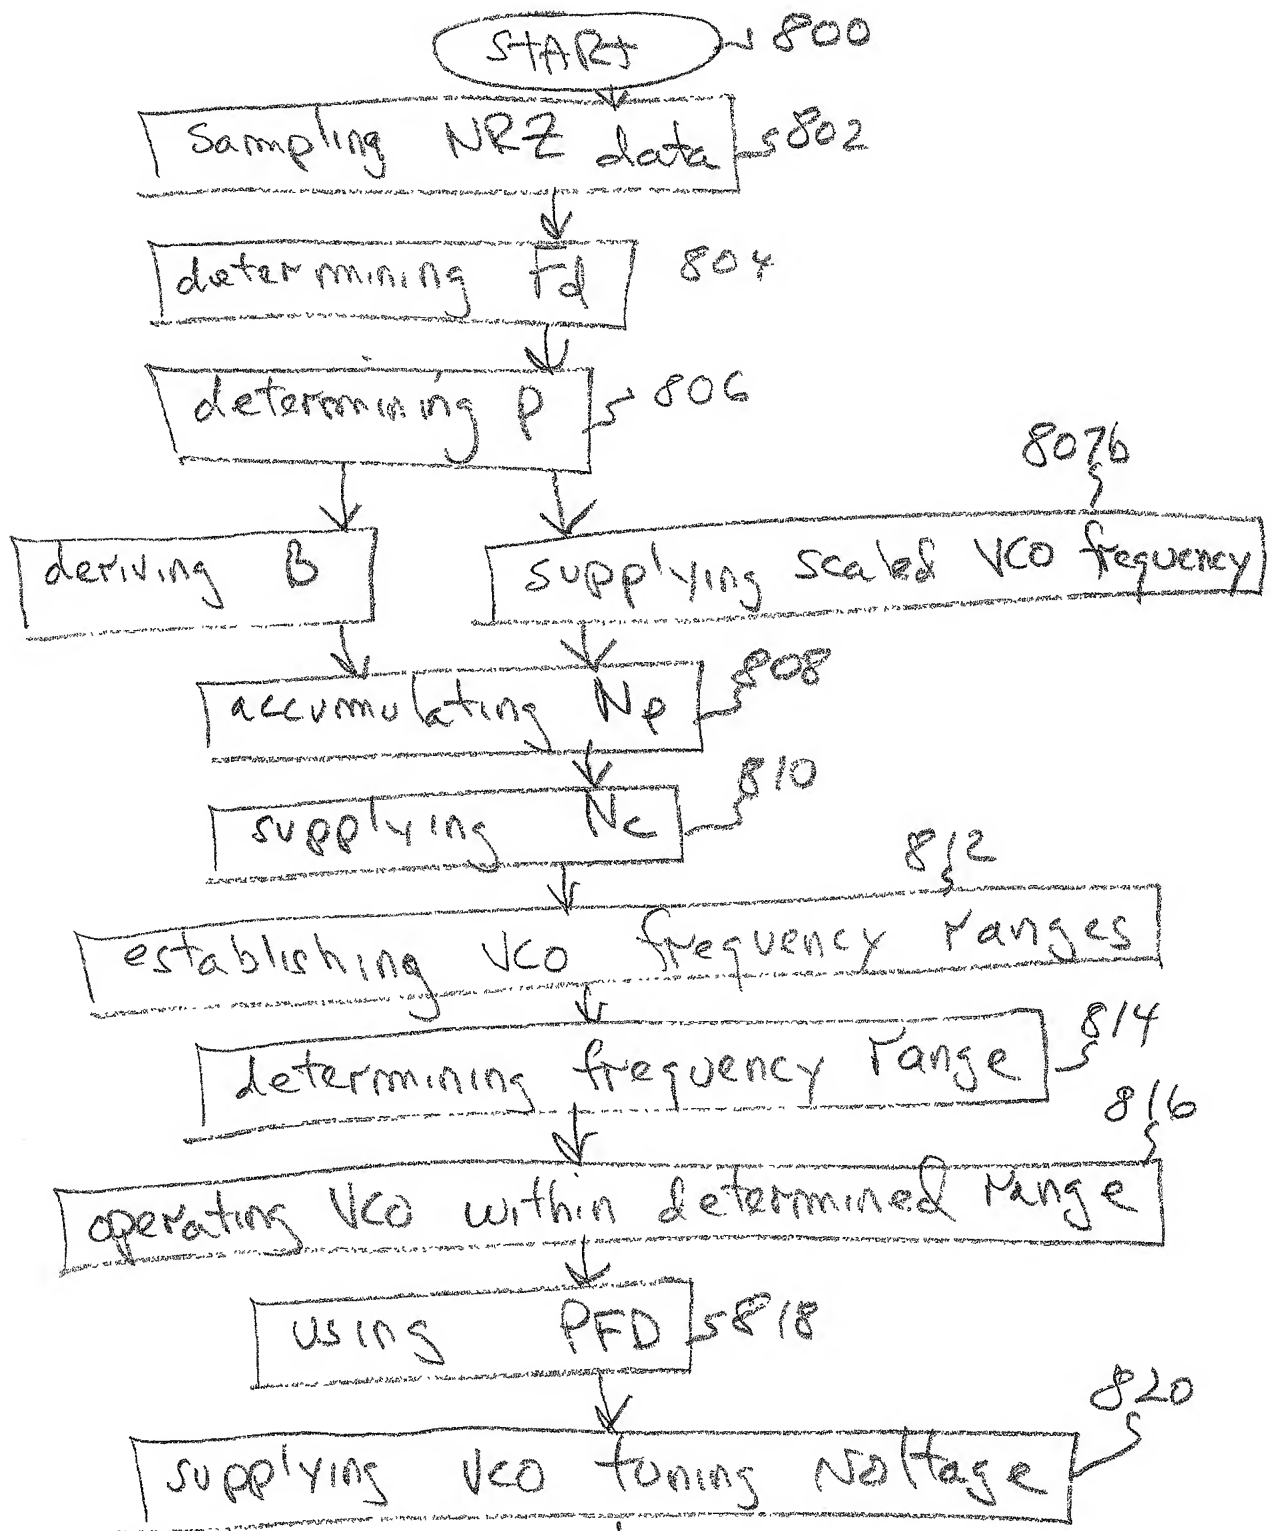 START 800
sampling NRZ data 802
determining Fd 804
determining P 806
807b
deriving B
supplying scaled VCO frequency
accumulating Np 808
supplying Nc 810
812
establishing VCO frequency ranges
determining frequency range 814
816
operating VCO within determined range
using PFD 818
820
supplying VCO tuning Voltage